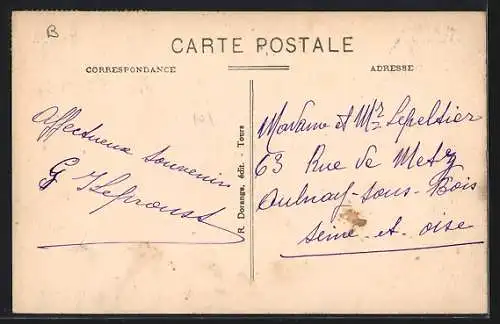 B
CARTE POSTALE
CORRESPONDANCE
ADRESSE
Affectueux souvenir
G
R. Dorange, édit. - Tours
Madame et Mr Lepeltier
63 Rue de Metz
Aulnay-sous-Bois
Seine-et-oise